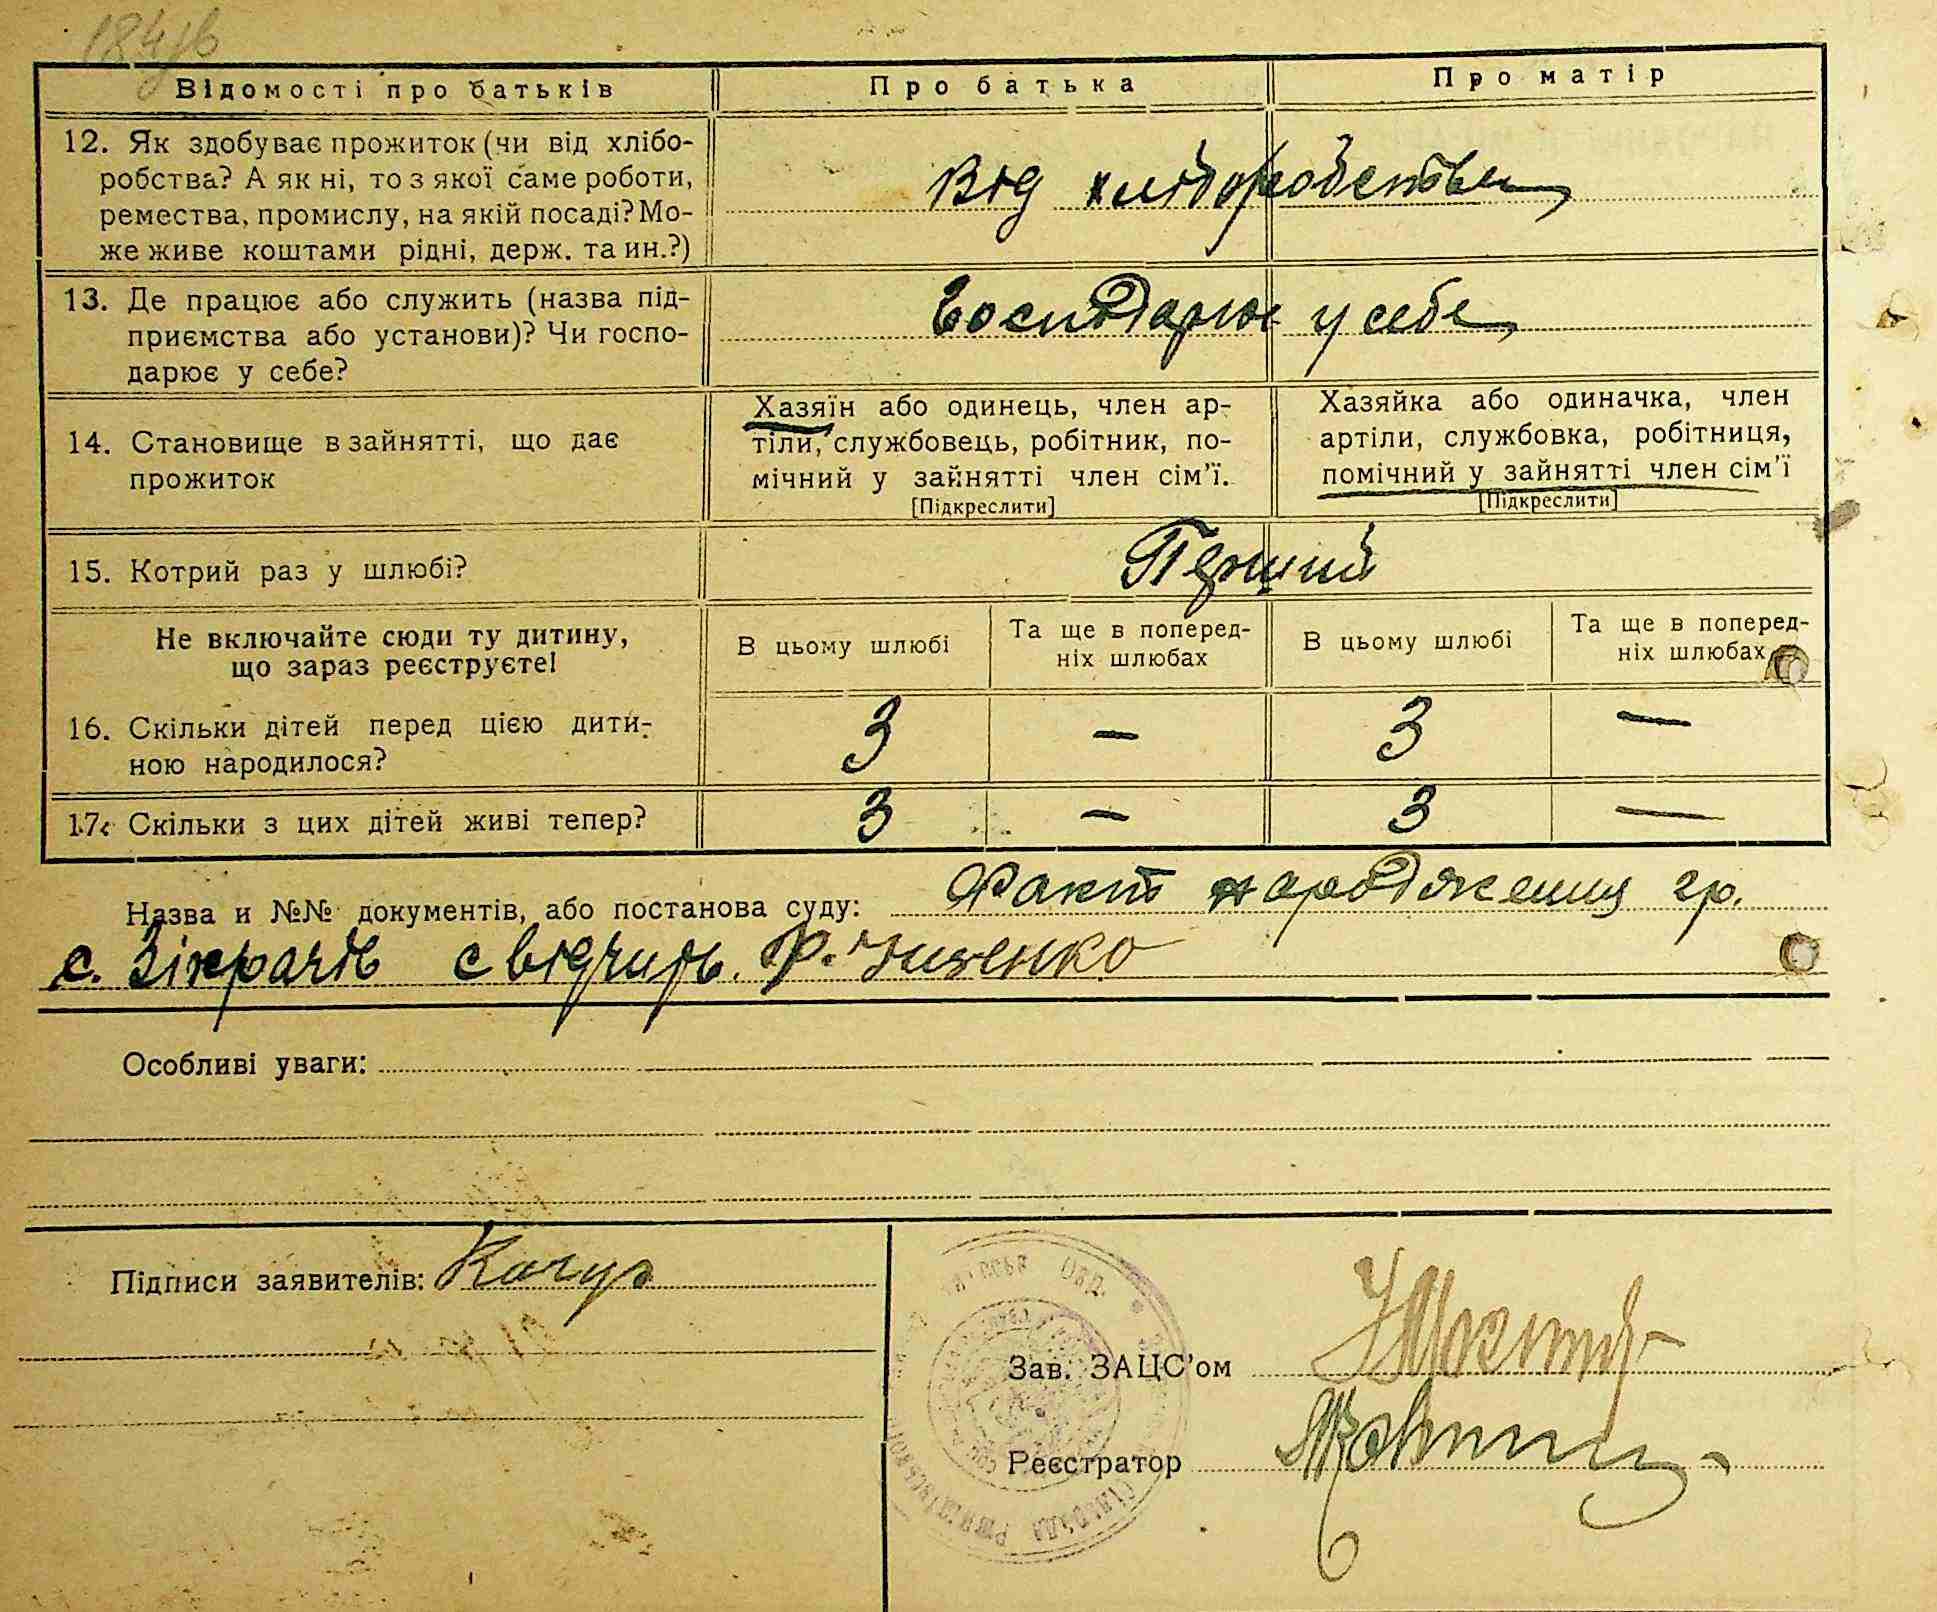 Відомості про батьків
Про батька
Про матір
12. Як здобуває прожиток (чи від хлібо-
робства? А як ні, то з якої саме роботи,
ремества, промислу, на якій посаді? Мо-
же живе коштами рідні, держ. та ин.?)
Від хліборобства
13. Де працює або служить (назва під-
приємства або установи)? Чи госпо-
дарює у себе?
Господарює у себе
14. Становище в зайнятті, що дає
прожиток
Хазяїн або одинець, член ар-
тіли, службовець, робітник, по-
мічний у зайнятті член сім'ї.
[Підкреслити]
Хазяйка або одиначка, член
артіли, службовка, робітниця,
помічний у зайнятті член сім'ї
[Підкреслити]
15. Котрий раз у шлюбі?
Перший
Не включайте сюди ту дитину,
що зараз реєструєте!
В цьому шлюбі
Та ще в поперед-
ніх шлюбах
В цьому шлюбі
Та ще в поперед-
ніх шлюбах
16. Скільки дітей перед цією дити-
ною народилося?
3 — 3 —
17. Скільки з цих дітей живі тепер?
3 — 3 —
Назва и №№ документів, або постанова суду: Факт народження гр.
с. свідчить.
Особливі уваги:
Підписи заявителів: Качур
Зав. ЗАЦС'ом
Реєстратор